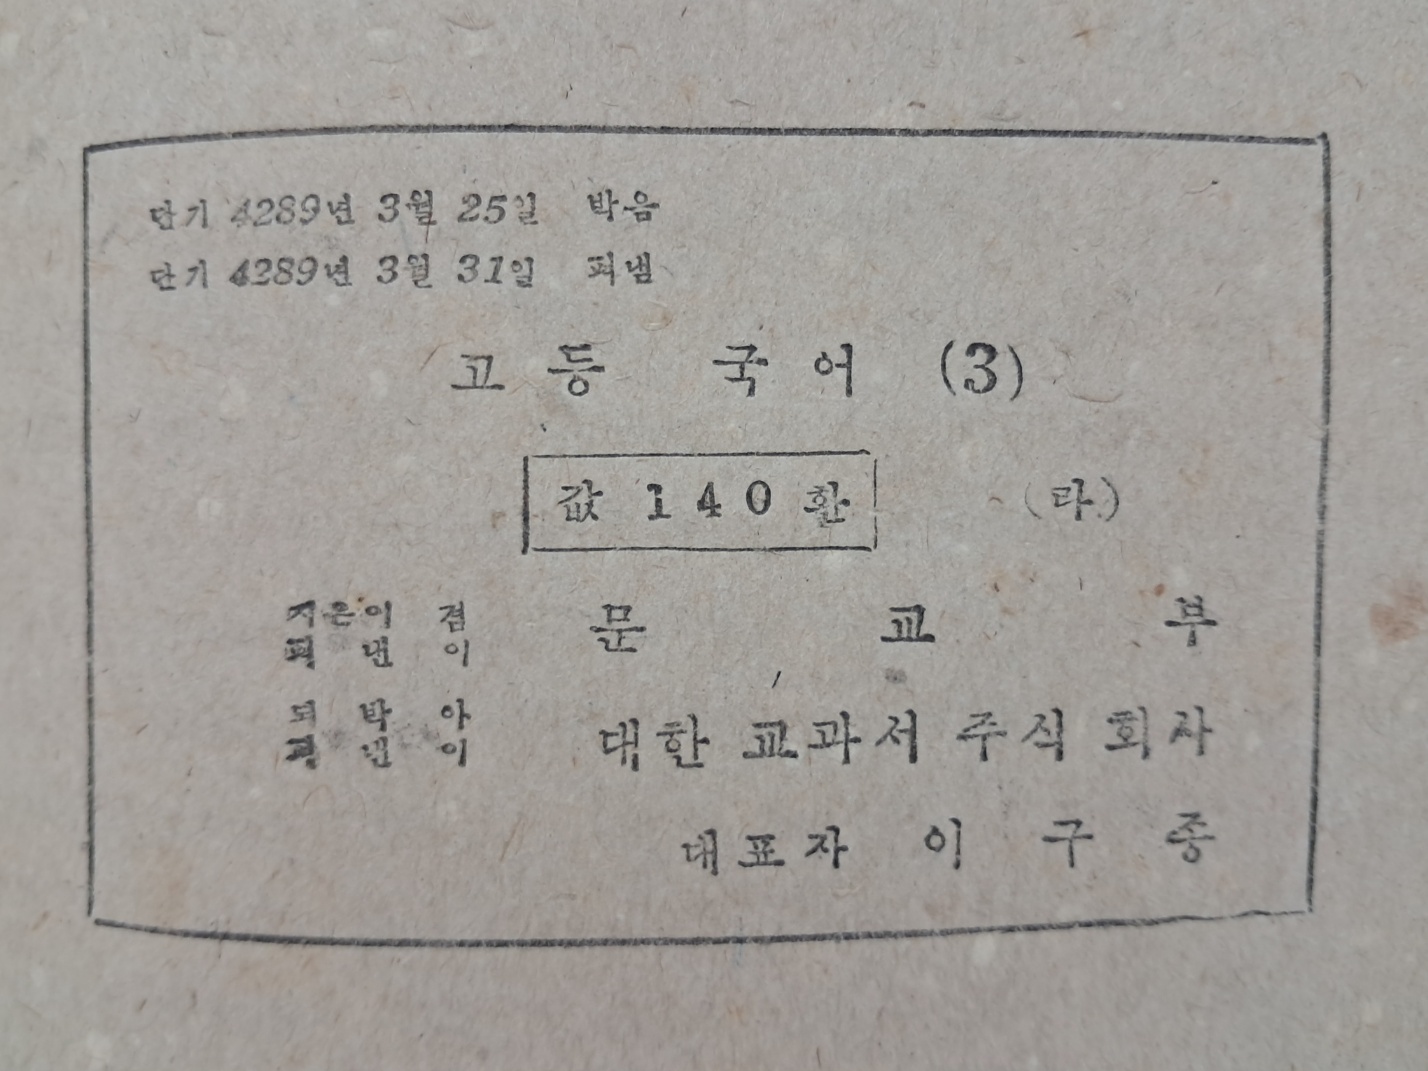 단기 4289년 3월 25일 박음
단기 4289년 3월 31일 펴냄
고등 국어 (3)
값 140환 (타)
지은이 겸 문교부
펴낸이
되박아 대한 교과서 주식 회사
펴낸이
대표자 이구종